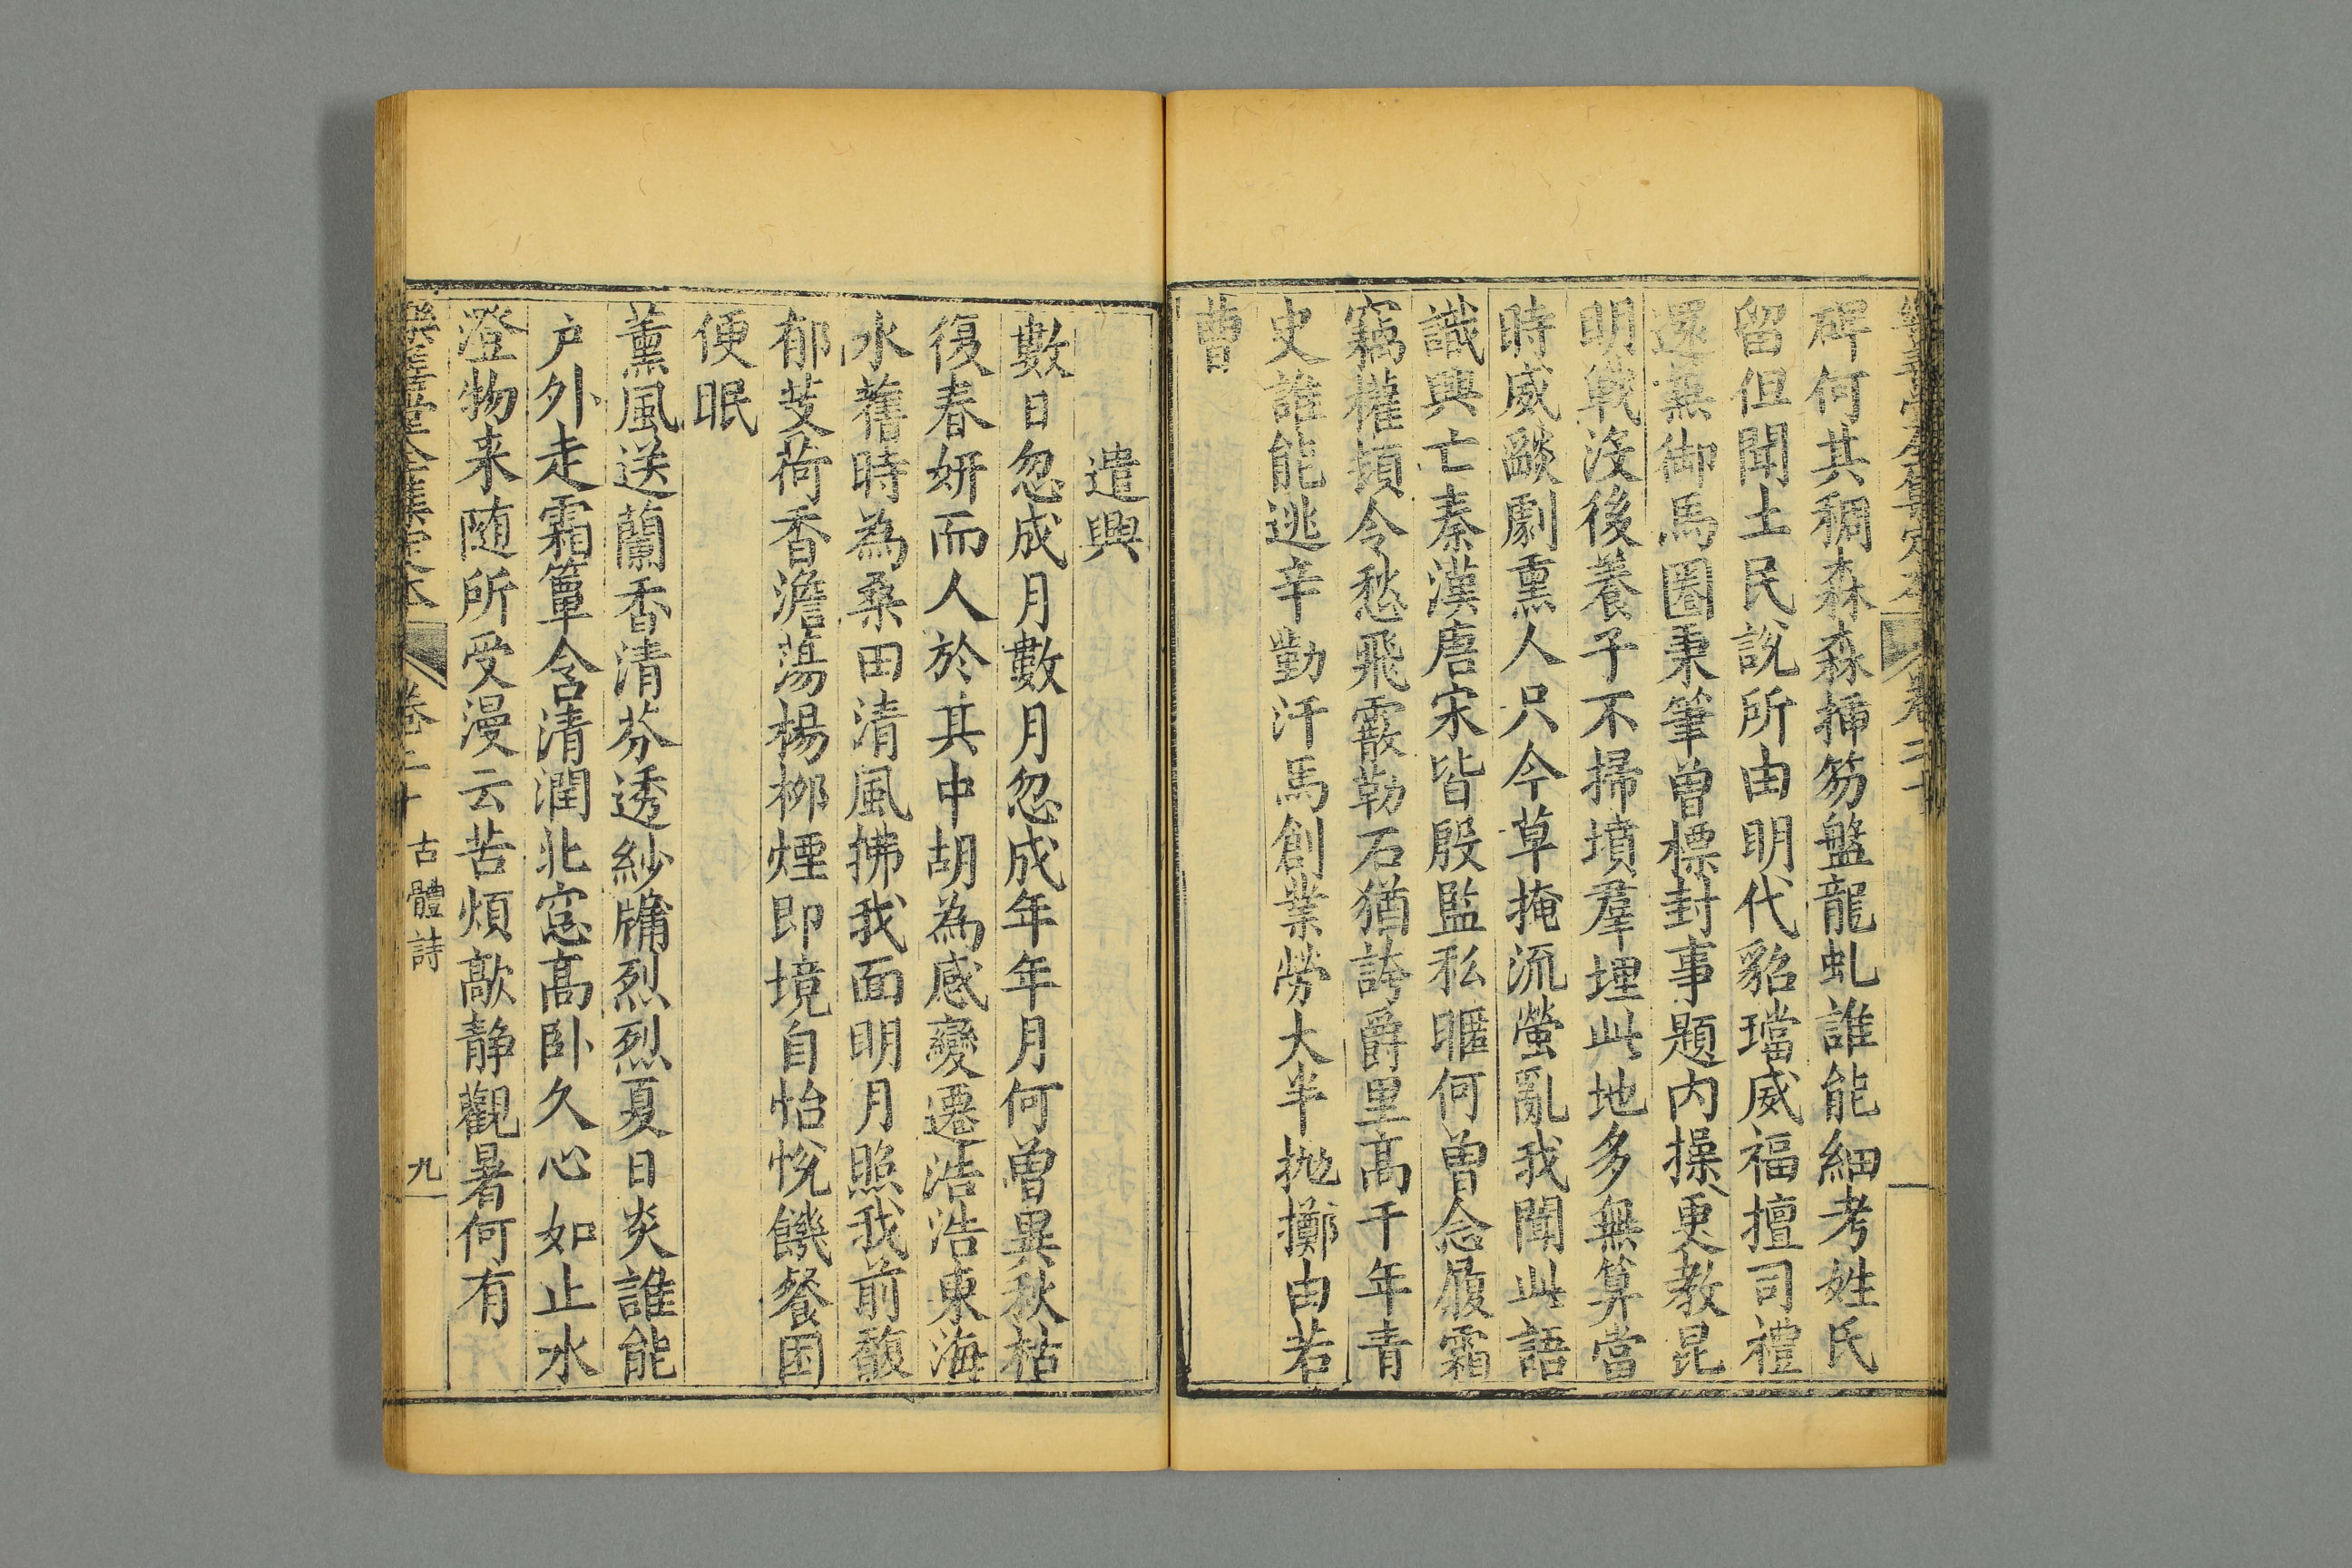 碑何其稠森森搢笏盤龍虬誰能細考姓氏
留但聞土民說所由明代貂璫威福擅司禮
還兼御馬圈秉筆曾標封事題内操更教昆
明戰没後養子不掃墳羣埋此地多無算當
時威燄劇熏人只今草掩流螢亂我聞此語
識興亡秦漢唐宋皆殷監私暱何曾念履霜
竊權頻令愁飛霰勒石猶誇爵里高千年青
史誰能逃辛勤汗馬創業勞大半抛擲由若
曹
遣興
數日忽成月數月忽成年年月何曾異秋枯
復春妍而人於其中胡為感變遷浩浩東海
水舊時為桑田清風拂我面明月照我前馥
郁芰荷香澹蕩楊栁煙即境自怡悅饑餐困
便眠
薰風送蘭香清芬透紗牖烈烈夏日炎誰能
户外走霜簟含清潤北窓高卧久心如止水
澄物来随所受漫云苦煩歊静觀暑何有
樂善堂全集定本
卷二十
古體詩
九